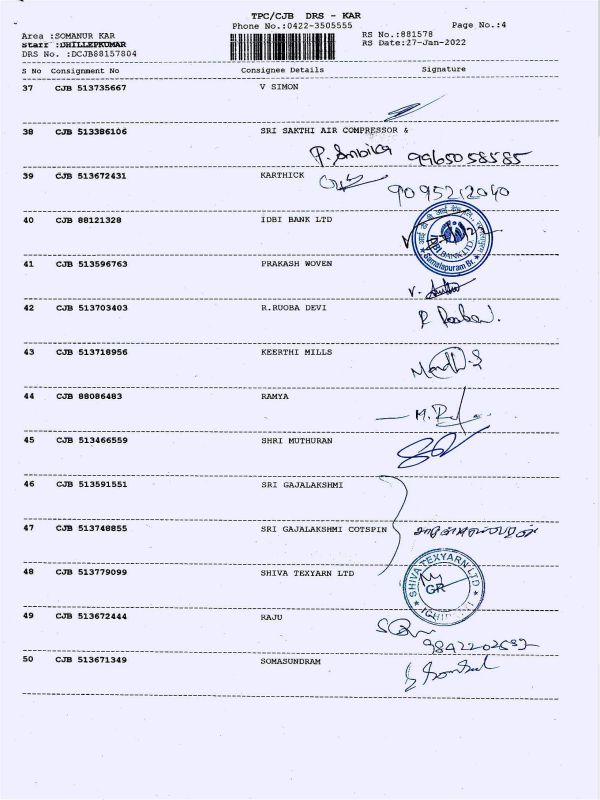 TPC/CJB DRS - KAR
Phone No.:0422-3505555
Page No.:4
Area :SOMANUR KAR
Staff :DHILLEPKUMAR
DRS No. :DCJB88157804
RS No.:881578
RS Date:27-Jan-2022
S No Consignment No Consignee Details Signature
37 CJB 513735667 V SIMON
38 CJB 513386106 SRI SAKTHI AIR COMPRESSOR &
P. Ambika 9965058585
39 CJB 513672431 KARTHICK
9095212040
40 CJB 88121328 IDBI BANK LTD
IDBI BANK LTD.
Samalapuram Br.
41 CJB 513596763 PRAKASH WOVEN
42 CJB 513703403 R.RUOBA DEVI
43 CJB 513718956 KEERTHI MILLS
44 CJB 88086483 RAMYA
45 CJB 513466559 SHRI MUTHURAN
46 CJB 513591551 SRI GAJALAKSHMI
47 CJB 513748855 SRI GAJALAKSHMI COTSPIN
48 CJB 513779099 SHIVA TEXYARN LTD
SHIVA TEXYARN LTD
GR
49 CJB 513672444 RAJU
9842202692
50 CJB 513671349 SOMASUNDRAM